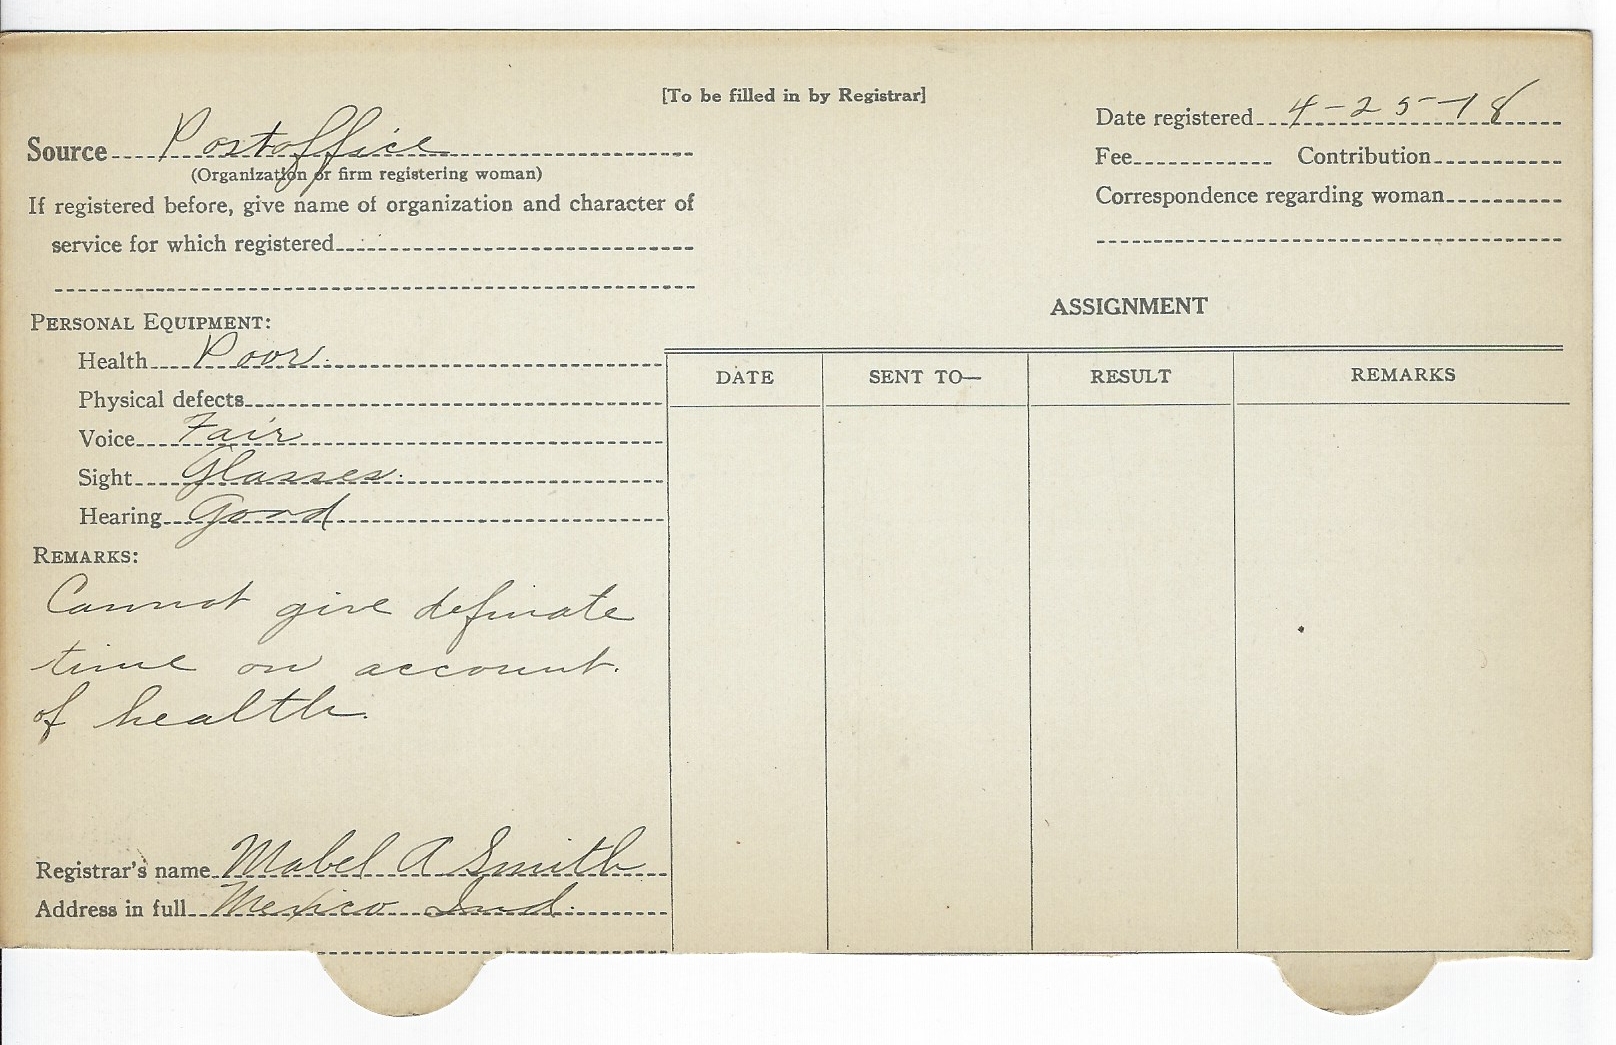 [To be filled in by Registrar]
Source Postoffice
(Organization or firm registering woman)
If registered before, give name of organization and character of
service for which registered
Date registered 4-25-18
Fee Contribution
Correspondence regarding woman
PERSONAL EQUIPMENT:
Health Poor.
Physical defects
Voice Fair
Sight Glasses.
Hearing Good
REMARKS:
Cannot give definate
time on account.
of health.
Registrar's name Mabel A Smith
Address in full Mexico Ind.
ASSIGNMENT
DATE SENT TO— RESULT REMARKS